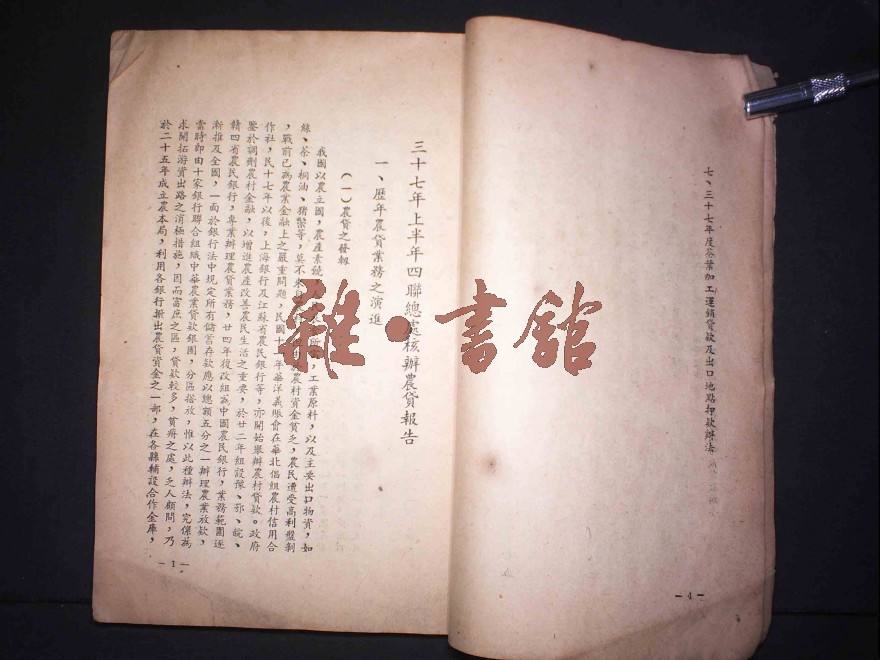 七、三十七年度茶葉加工運銷貸款及出口地點押款辦法
－4－
三十七年上半年四聯總處核辦農貸報告
一、歷年農貸業務之演進
（一）農貸之發軔
我國以農立國，農產素饒，工業原料，以及主要出口物資，如
絲、茶、桐油、猪鬃等，莫不來自農村資金貧乏，農民遭受高利盤剝
，戰前已為農業金融上之嚴重問題，民國十一年華洋義賑會在華北倡組農村信用合
作社，民十七年以後，上海銀行及江蘇省農民銀行等，亦開始舉辦農村貸款。政府
鑒於調劑農村金融，以增進農產改善農民生活之重要，於廿二年組設豫、鄂、皖、
贛四省農民銀行，專業辦理農貸業務，廿四年後改組為中國農民銀行，業務範圍逐
漸推及全國，一面於銀行法中規定所有儲蓄存款應以總額五分之一辦理農業放款，
當時即由十家銀行聯合組織中華農業貸款銀團，分區搭放，惟以此種辦法，究係為
求開拓游資出路之消極措施，因而富庶之區，貸款較多，貧瘠之處，乏人顧問，乃
於二十五年成立農本局，利用各銀行撥出農貸資金之一部，在各縣輔設合作金庫，
－1－
雜·書館